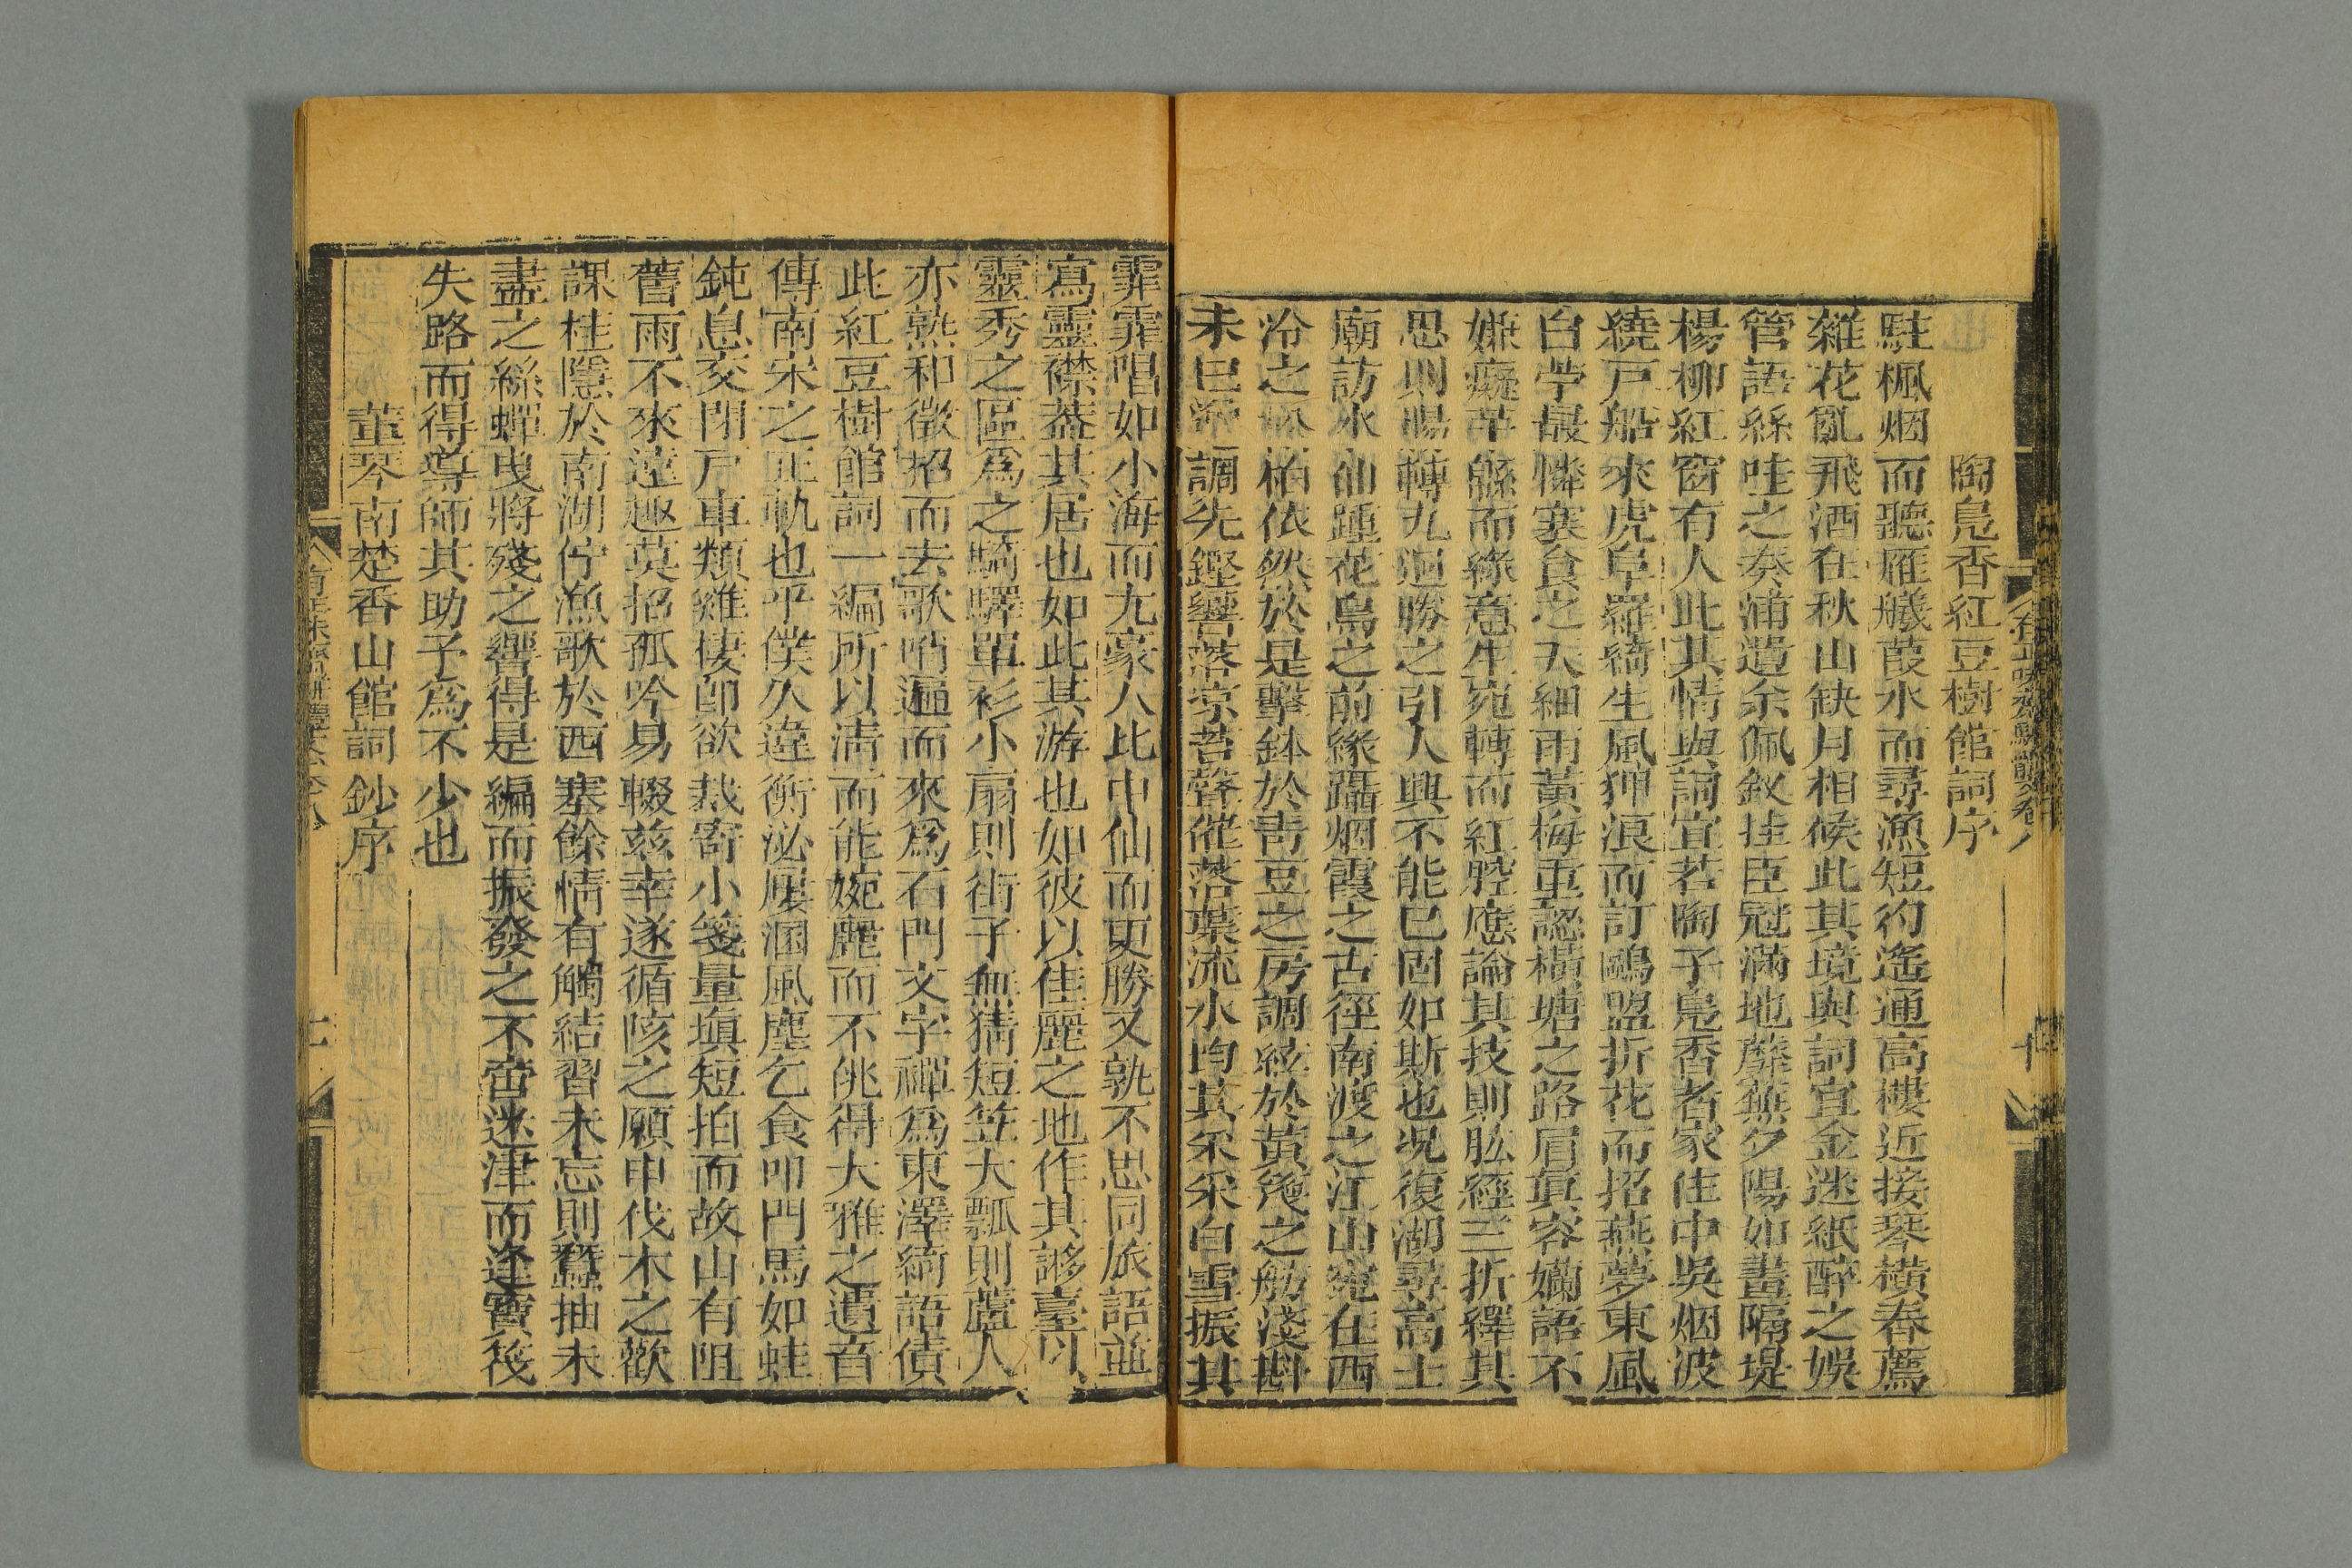 也
陶鳧香紅豆樹館詞序
駐楓烟而聽雁艤葭水而尋漁短彴遙通高樓近接琴橫春薦
雜花亂飛酒在秋山缺月相候此其境與詞宜金迷紙醉之娛
管語絲哇之奏浦遺余佩釵挂臣冠滿地蘼蕪夕陽如畫隔堤
楊柳紅窗有人此其情與詞宜若陶子鳧香者家住中吳烟波
繞戸船來虎阜羅綺生風狎浪而訂鷗盟折花而招燕夢東風
白苧最憐寒食之天細雨黃梅重認橫塘之路眉眞容嫵語不
嫌癡草緜而綠意生宛轉而紅腔應論其技則肱經三折繹其
思則腸轉九迴勝之引人興不能已固如斯也況復湖尋高士
廟訪水仙踵花鳥之前緣躡烟霞之古徑南渡之江山宛在西
泠之松柏依然於是擊鉢於靑豆之房調絃於黃篾之舫淺斟
未已 調先鏗響落 聲催落葉流水均其采采白雪振其
霏霏唱如小海而九豪人比中仙而更勝又孰不思同旅語並
寫靈襟蓋其居也如此其游也如彼以佳麗之地作其謻臺以
靈秀之區爲之騎驛單衫小扇則街子無猜短笠大瓢則蘆人
亦熟和徵招而去歌哨遍而來爲石門文字禪爲東澤綺語債
此紅豆樹館詞一編所以淸而能婉麗而不佻得大雅之遺音
傳南宋之正軌也乎僕久違衡泌屢涸風塵乞食叩門馬如蛙
鈍息交閉戸車類雞棲卽欲裁寄小箋量塡短拍而故山有阻
舊雨不來遠趣莫招孤吟易輟兹幸遂循陔之願申伐木之歡
課桂隱於南湖佇漁歌於西塞餘情有觸結習未忘則蠶抽未
盡之絲蟬曳將殘之響得是編而振發之不啻迷津而逢寶筏
失路而得導師其助予爲不少也
董琴南楚香山館詞鈔序